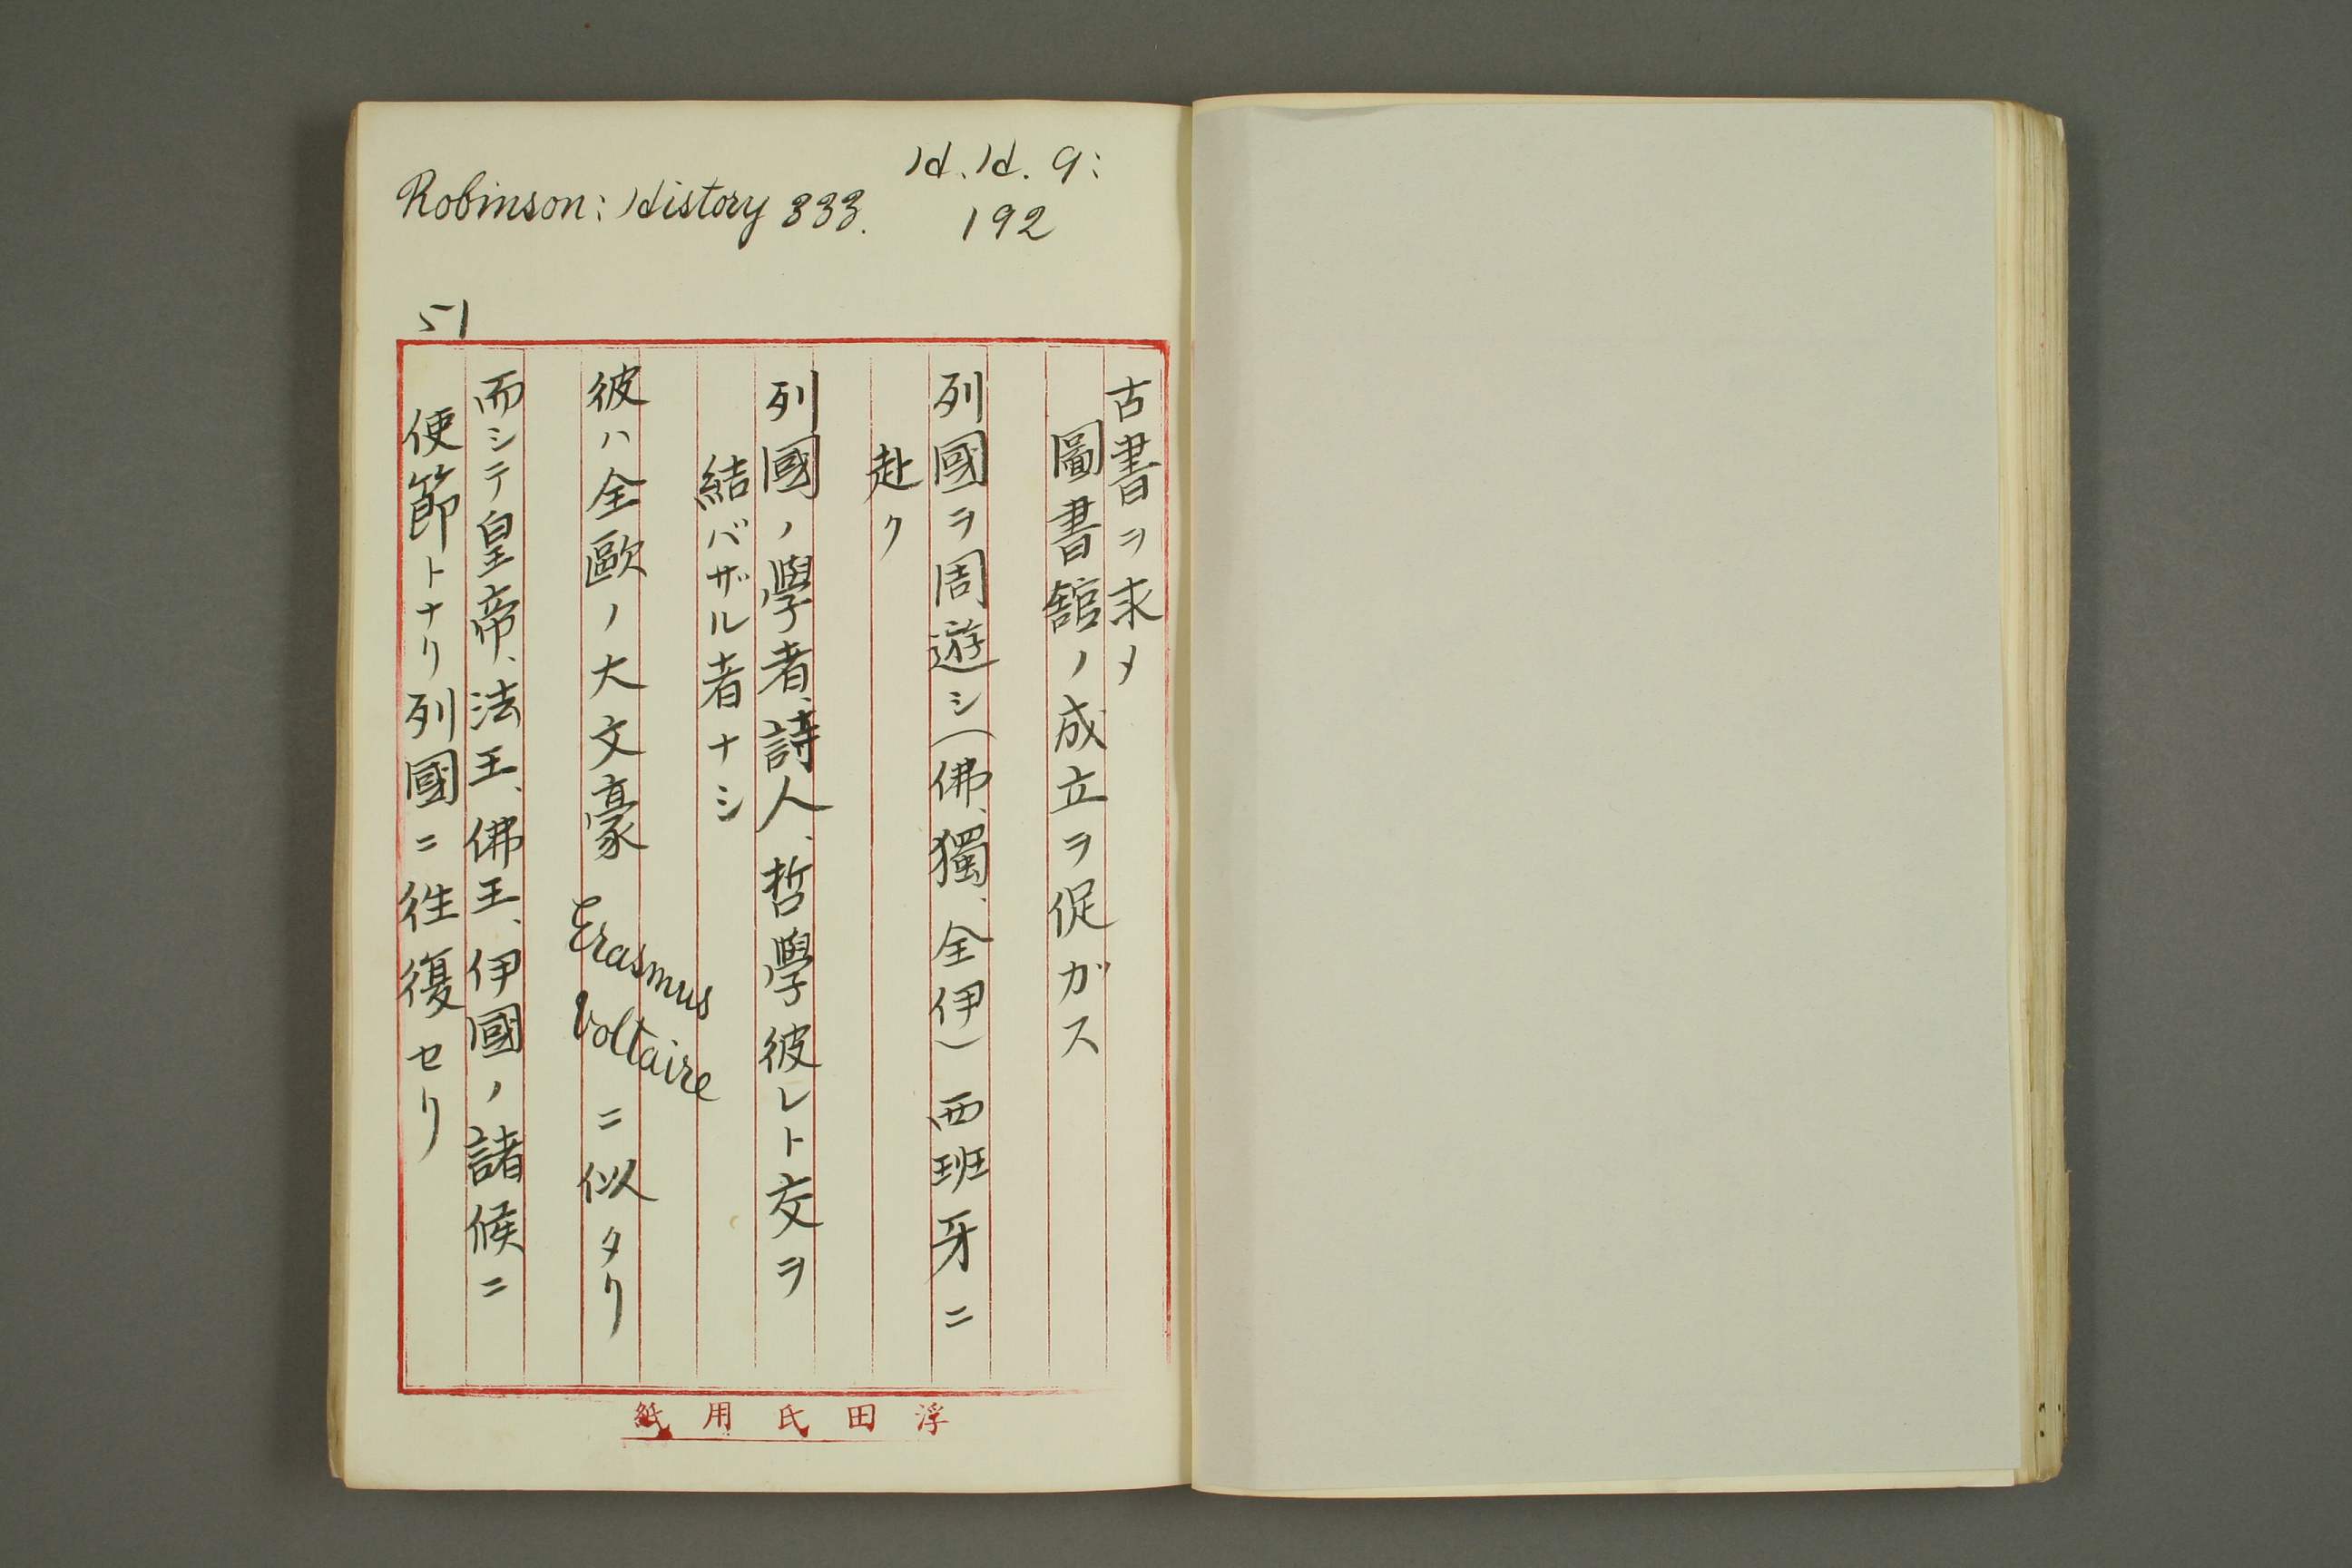 H.H. 9:
192
Robinson: History 333.
51
古書ヲ求メ
圖書舘ノ成立ヲ促ガス
列國ヲ周遊シ(佛、獨、全伊)西班牙ニ
赴ク
列國ノ學者、詩人、哲學彼レト交ヲ
結バザル者ナシ
彼ハ全歐ノ大文豪 Erasmus Voltaire ニ似タリ
而シテ皇帝、法王、佛王、伊國ノ諸候ニ
使節トナリ列國ニ徃復セリ
浮田氏用紙